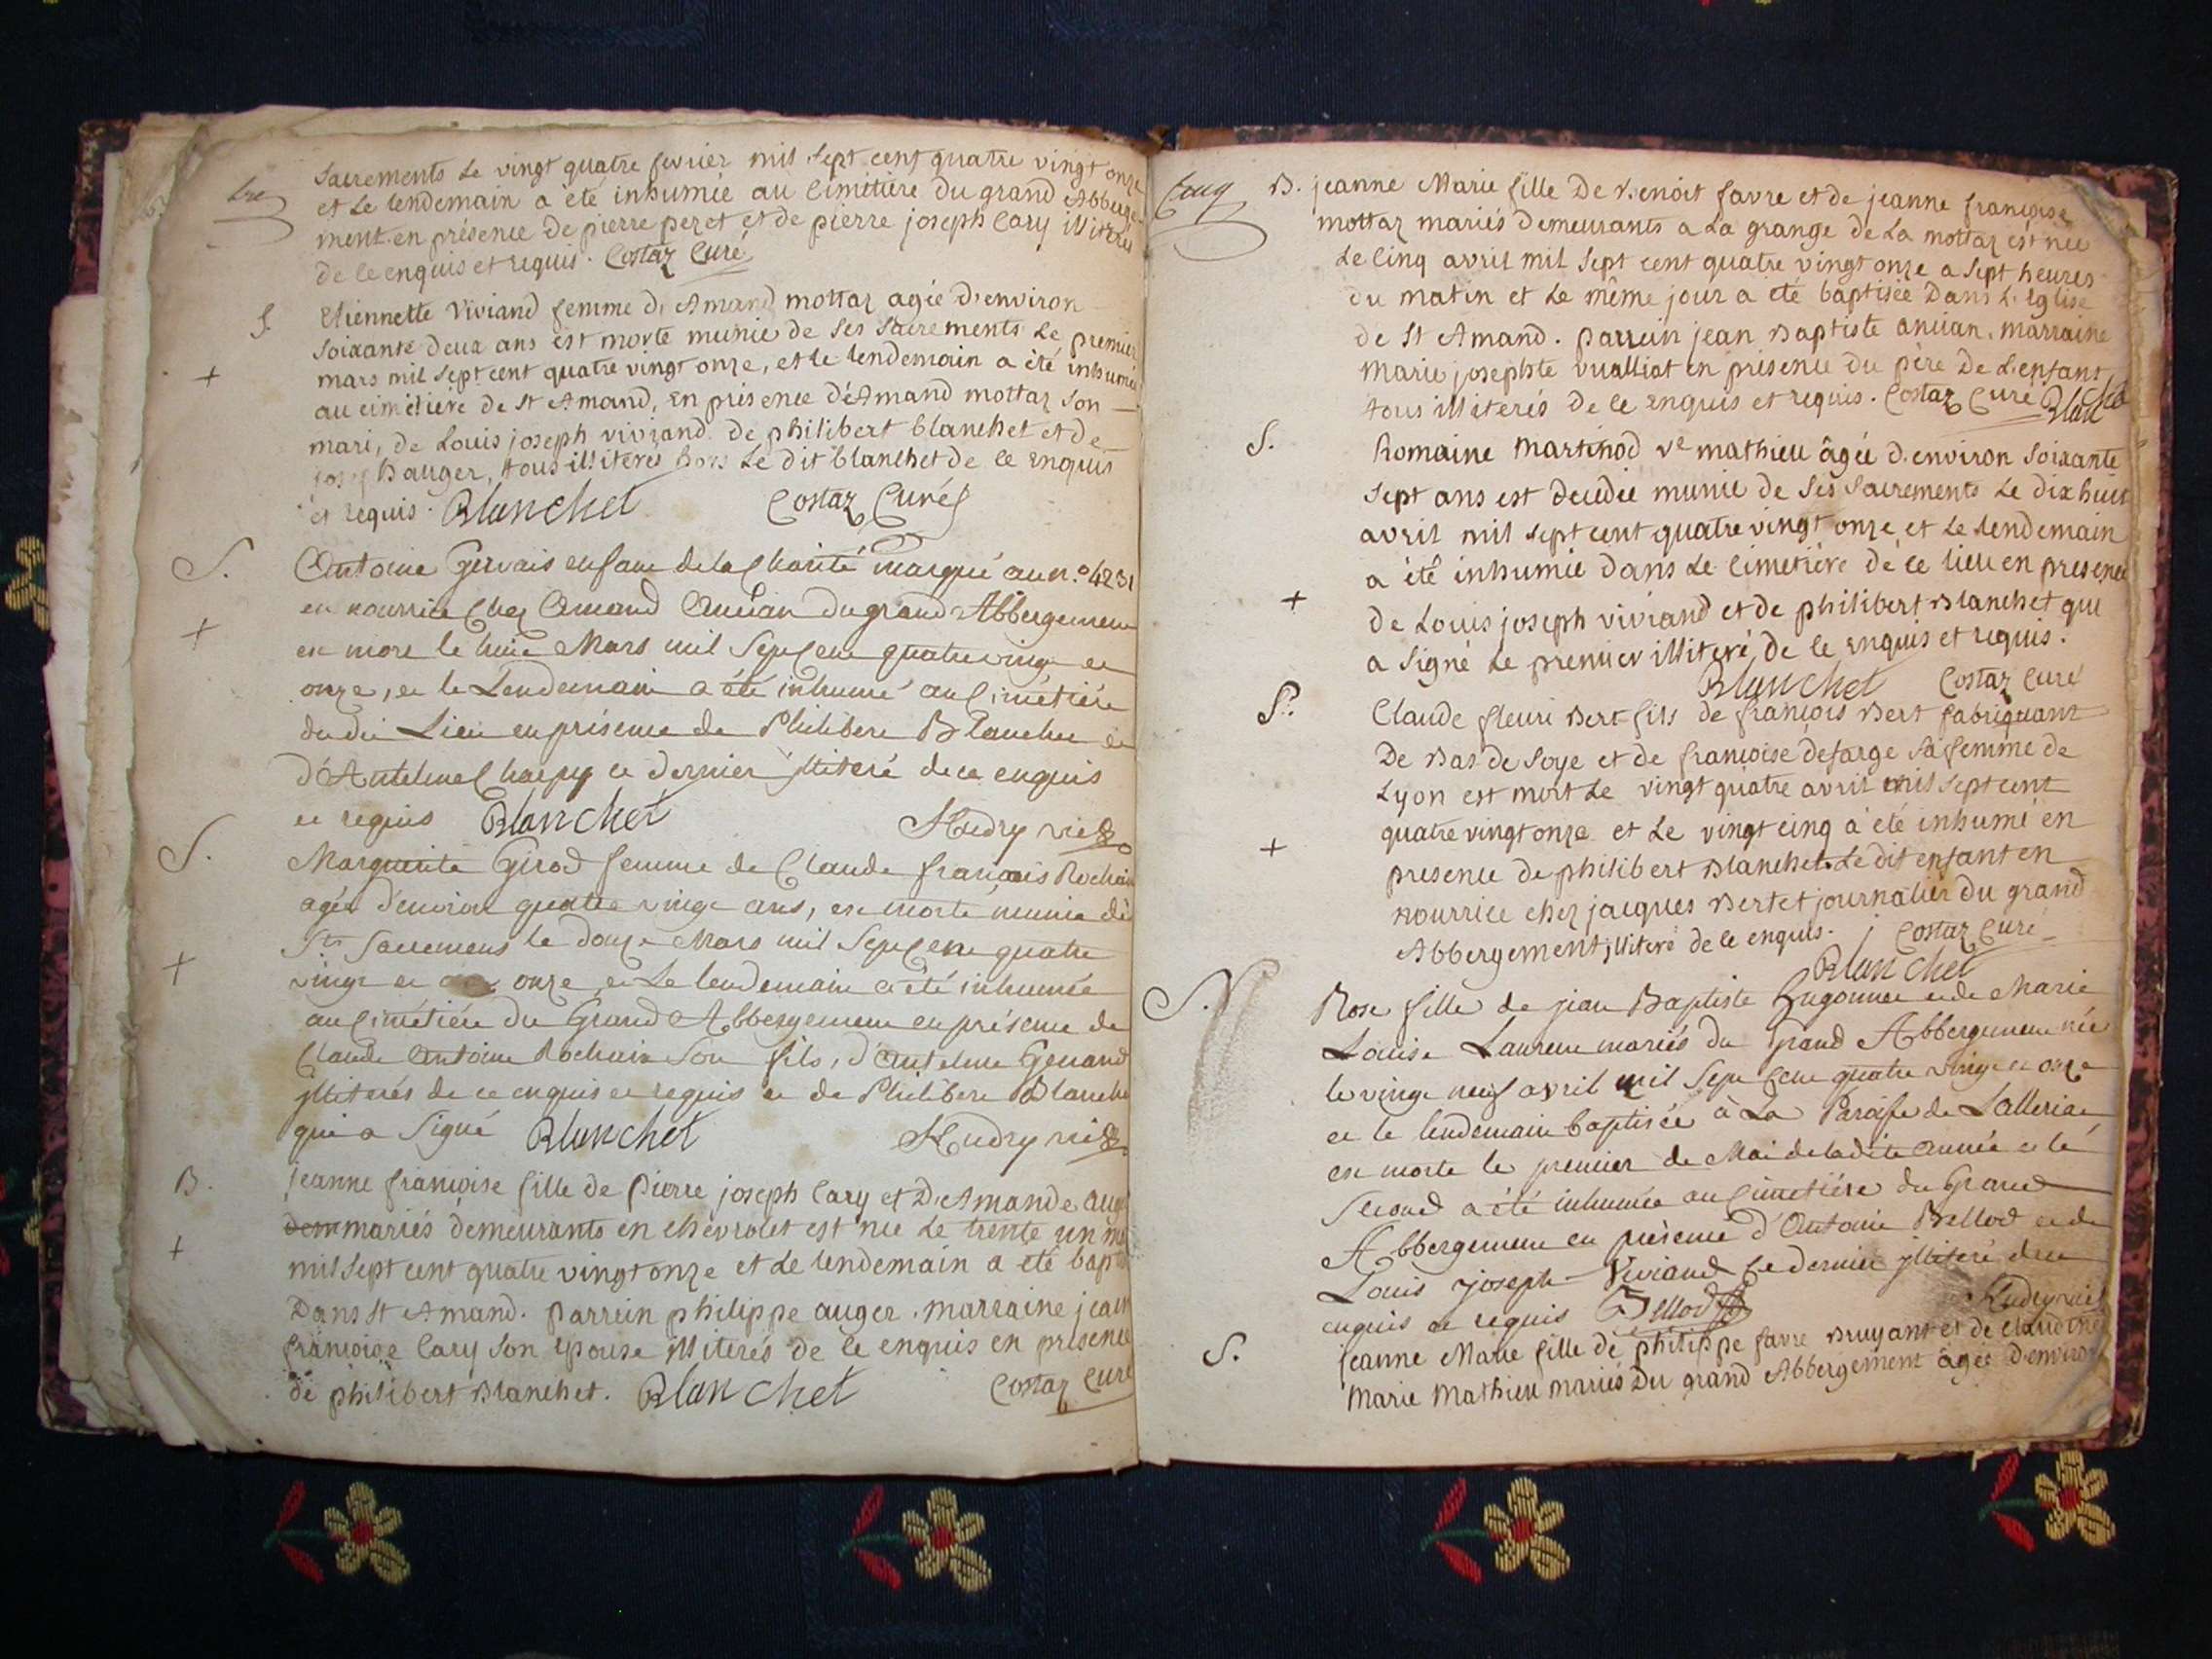 Sacrements le vingt quatre fevrier mil sept cent quatre vingt onze
et le lendemain a été inhumée au Cimitière du grand Abberge-
ment en présence de pierre peret et de pierre joseph Cary illiterés
de ce enquis et requis. Costaz Curé
S.
Etiennette Viviand femme d'Amand mottaz agée d'environ
soixante deux ans est morte munie de ses sacrements le premier
+
mars mil sept cent quatre vingt onze, et le lendemain a été inhumée
au cimetiere de St Amand, en présence d'Amand mottaz son
mari, de Louis joseph viviand de philibert blanchet et de
joseph auger, tous illiterés hors le dit blanchet de ce enquis
et requis. Blanchet Costaz Curé
S.
Antoine Gervais enfant de la Charité marqué au n.o 4231
+
en nourrice chez Amand Anuian du grand Abbergement
est mort le huit Mars mil Sept Cent quatre vingt et
onze, et le Lendemain a été inhumé au Cimétiére
du dit Lieu en présence de Philibert Blanchet et
d'Antelme Charpy ce dernier illiteré de ce enquis
et requis Blanchet Hudry vic
S.
Marguerite Girod femme de Claude françois Rochaix
agée d'environ quatre vingt ans, est morte munie des
+
Sts Sacremens le douze Mars mil Sept Cent quatre
vingt et onze et Le lendemain a été inhumée
au Cimétiére du Grand Abbergement en présence de
Claude Antoine Rochaix Son fils, d'Antelme Genand
illiterés de ce enquis et requis et de Philibert Blanchet
qui a Signé Blanchet Hudry vic
B.
jeanne françoise fille de Pierre joseph Cary et D'Amande auger
+
mariés demeurants en chevrolet est née le trente un mars
mil sept cent quatre vingt onze et le lendemain a été baptisée
Dans St Amand. parrein philippe auger. marraine jeanne
françoise Cary son epouse illiterés de ce enquis en presence
de philibert Blanchet. Blanchet Costaz Curé
Cinq
B. jeanne Marie fille De Benoit favre et de jeanne françoise
mottaz mariés demeurants a la grange de La mottaz est née
le Cinq avril mil sept cent quatre vingt onze a sept heures
du matin et le même jour a été baptisée Dans l'Eglise
de St Amand. parrein jean Baptiste anuian. marraine
marie josephte vualliat en présence du père De l'enfant
tous illiterés de ce enquis et requis. Costaz Curé Blanchet
S.
Romaine Martinod ve mathieu âgée d'environ soixante
sept ans est decedée munie de ses sacrements le dix huit
avril mil sept cent quatre vingt onze et le lendemain
a été inhumée dans le cimetiére de ce lieu en presence
+
de Louis joseph viviand et de philibert Blanchet qui
a signé le premier illiteré de ce enquis et requis.
Blanchet Costaz Curé
S.
Claude fleuri Bert fils de françois Bert fabriquant
De Bas de Soye et de françoise defarge sa femme de
Lyon est mort le vingt quatre avril mil sept cent
+
quatre vingt onze et le vingt cinq a été inhumé en
presence de philibert Blanchet. Le dit enfant en
nourrice chez jacques Bertet journalier du grand
Abbergement, illiteré de ce enquis. Costaz Curé
Blanchet
S.
Rose fille de jean Baptiste Hugonnet et de Marie
Louise Laurent mariés du Grand Abbergement née
le vingt neuf avril mil Sept Cent quatre vingt et onze
et le lendemain baptisée à La Paroisse de Lalleriat
est morte le premier de Mai de ladite année et le
Second a été inhumée au Cimetiére du Grand
Abbergement en présence d'Antoine Bellod et de
Louis joseph Viviand Le dernier illiteré de ce
enquis et requis Bellod Hudry vic
S.
jeanne Marie fille de philippe favre Bruyant et de claudine
Marie Mathieu mariés Du grand Abbergement âgée d'environ